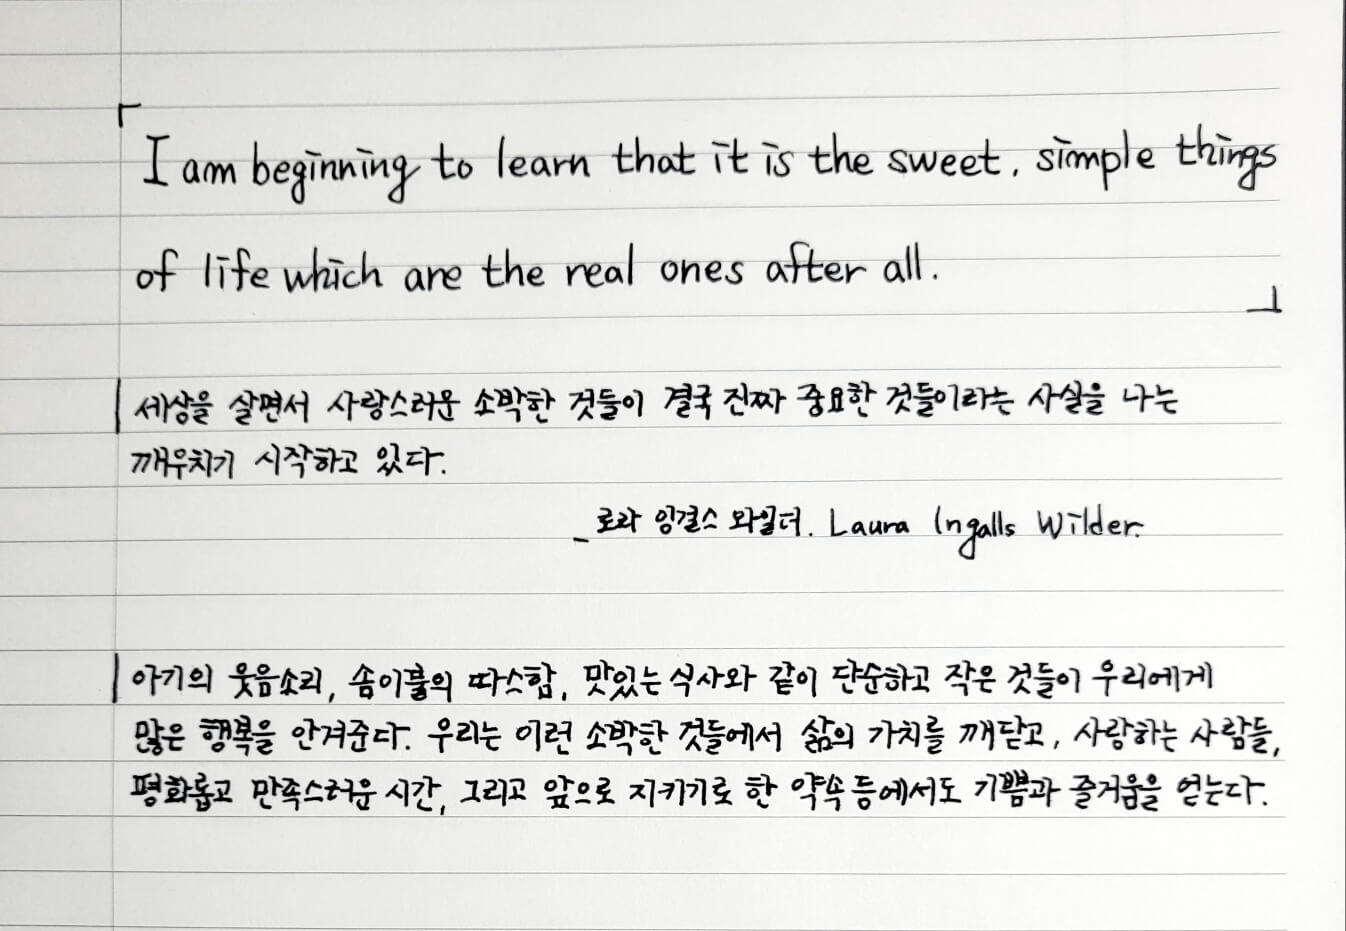 「I am beginning to learn that it is the sweet. simple things
of life which are the real ones after all.」
세상을 살면서 사랑스러운 소박한 것들이 결국 진짜 중요한 것들이라는 사실을 나는
깨우치기 시작하고 있다.
_ 로라 잉걸스 와일더. Laura Ingalls Wilder.
아기의 웃음소리, 솜이불의 따스함, 맛있는 식사와 같이 단순하고 작은 것들이 우리에게
많은 행복을 안겨준다. 우리는 이런 소박한 것들에서 삶의 가치를 깨닫고, 사랑하는 사람들,
평화롭고 만족스러운 시간, 그리고 앞으로 지키기로 한 약속 등에서도 기쁨과 즐거움을 얻는다.